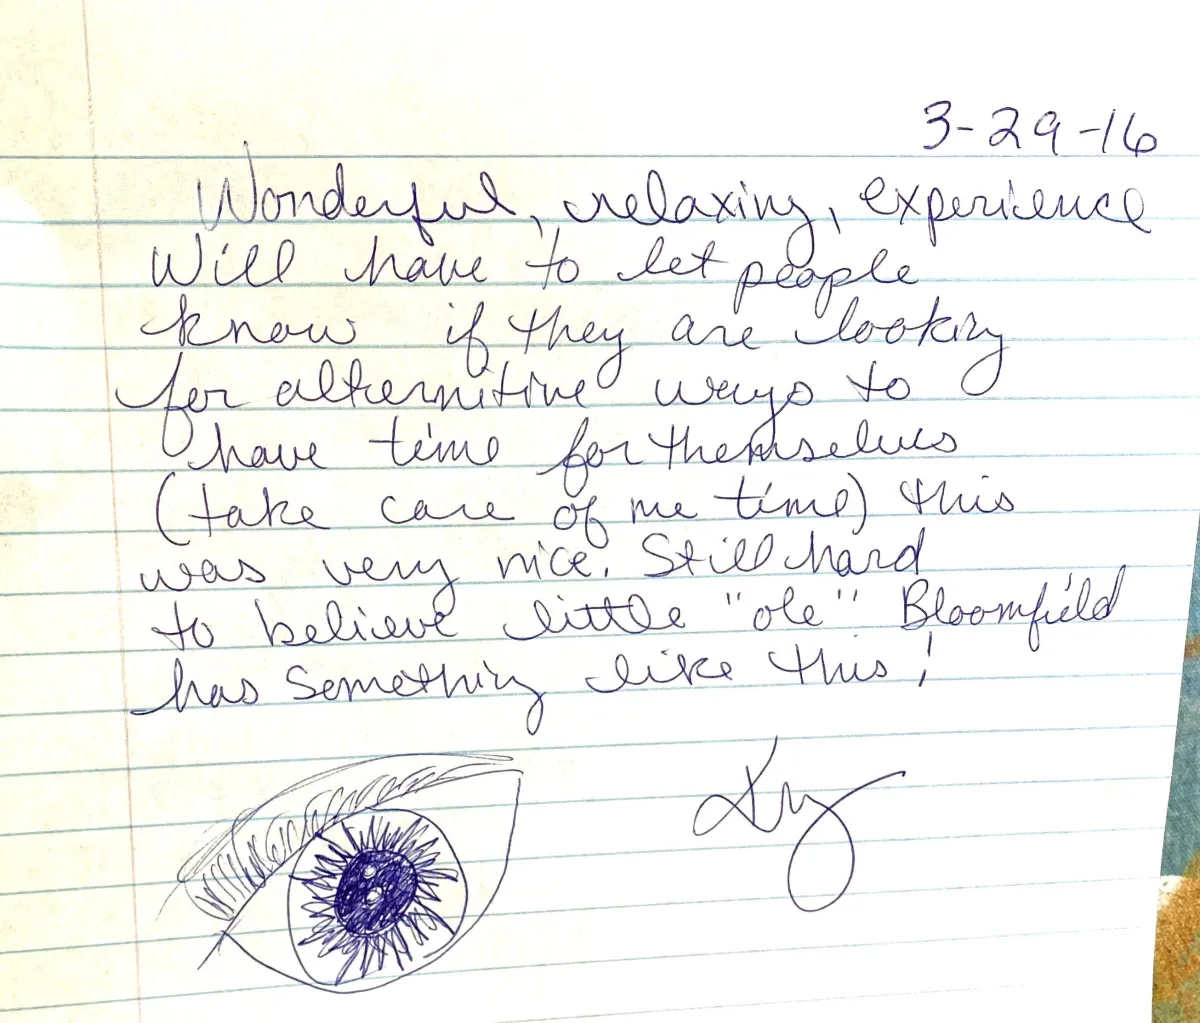 3-29-16
Wonderful, relaxing, experience
Will have to let people
know if they are looking
for alternitive ways to
have time for themselves
(take care of me time) this
was very nice. Still hard
to believe little "ole" Bloomfield
has something like this!